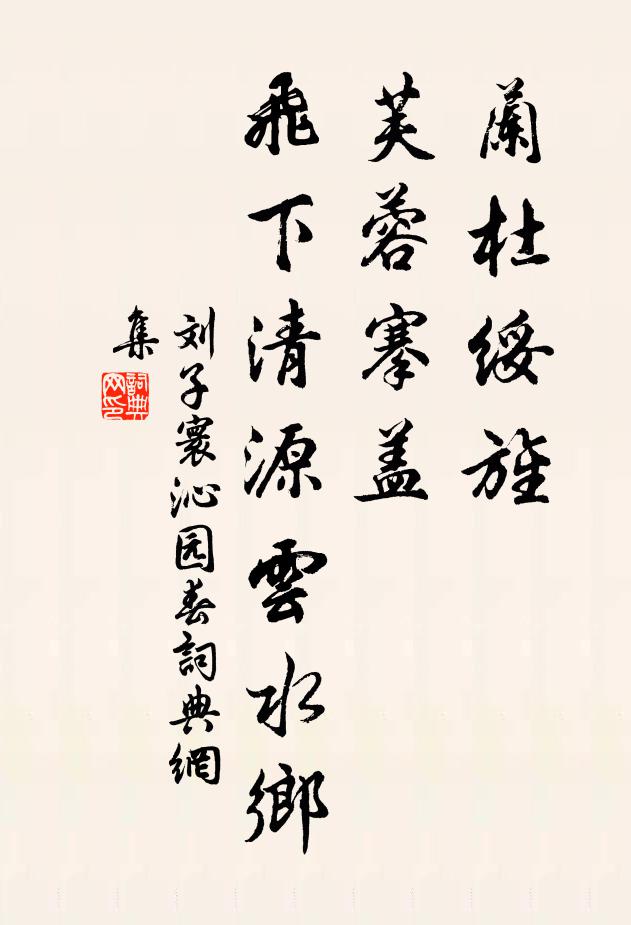 蘭杜綏旌
芙蓉搴盖
飛下清源雲水鄉
刘子寰沁园春詞典網
集
詞典
网印